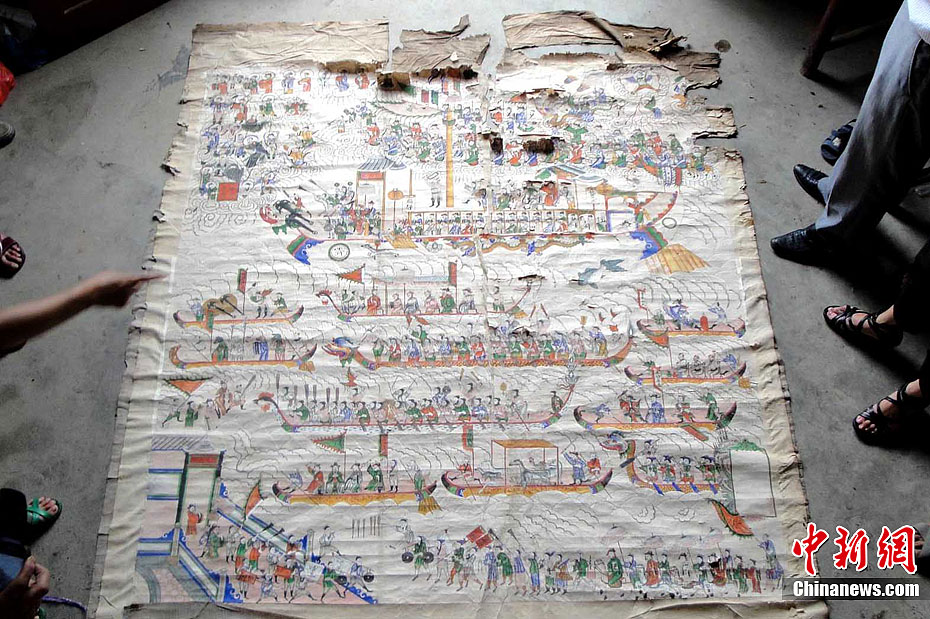 中新网
Chinanews.com